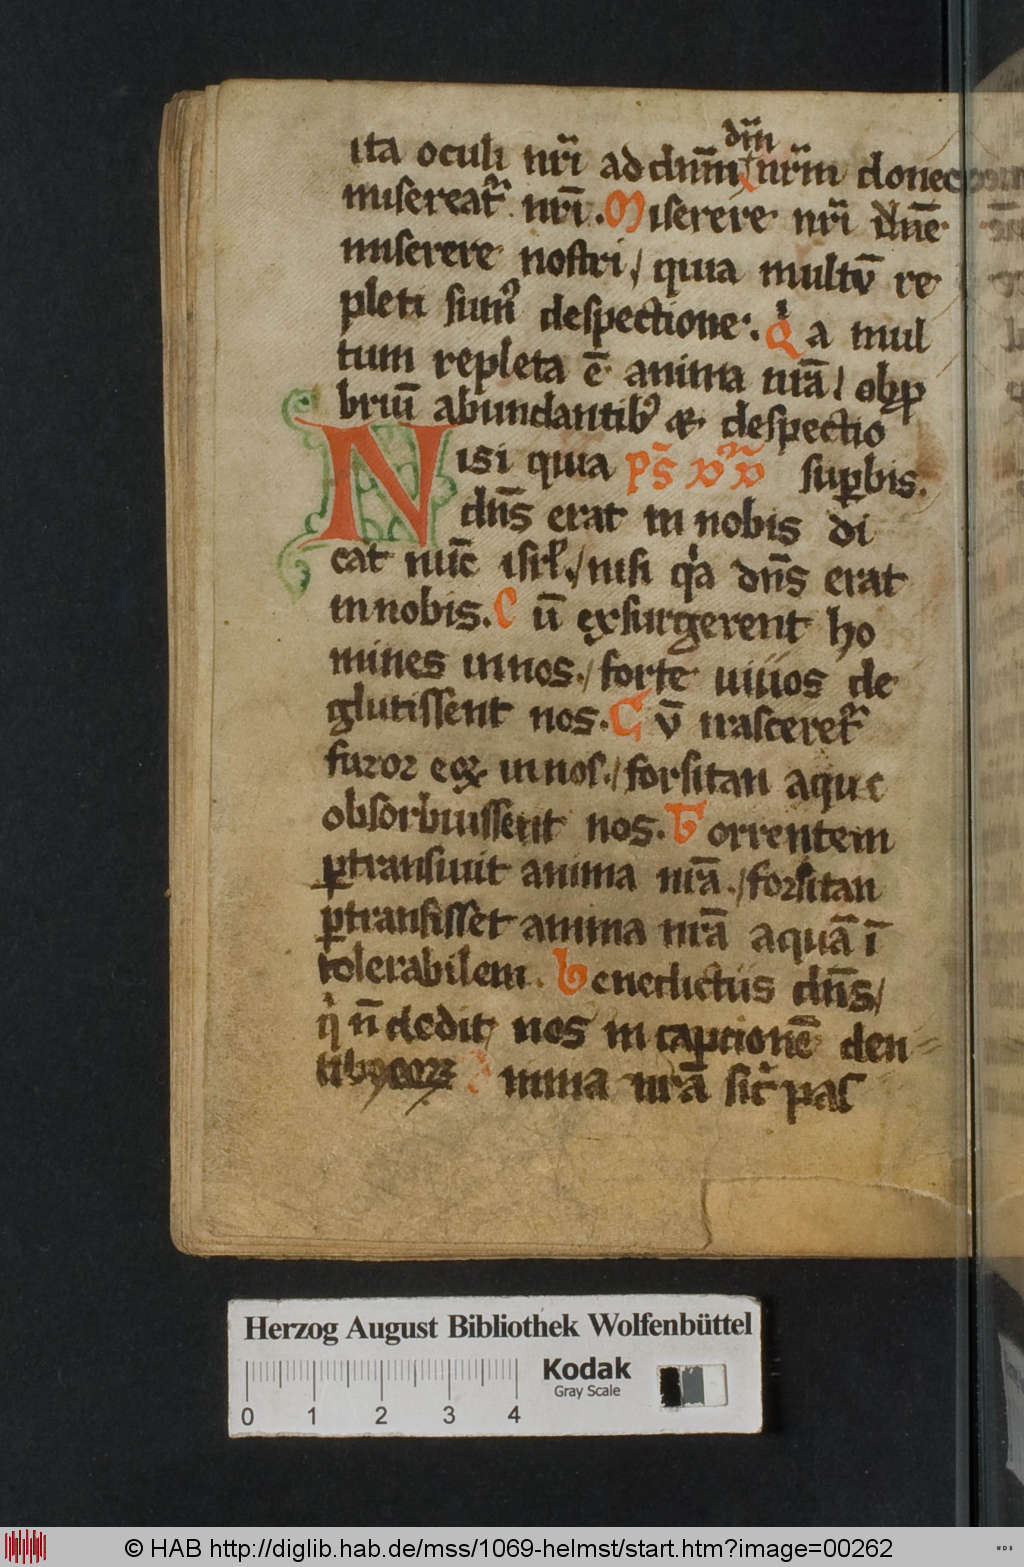 dm̄
ita oculi nr̄i ad dnm̄ nr̄m donec
misereat᷑ nr̄i. Miserere nr̄i dn̄e
miserere nostri/ quia multū re
pleti sumꝰ despectione. Qͥa mul
tum repleta ē anima nr̄a/ obꝓ
briū abundantibꝰ ⁊ despectio
Nisi quia pS̄ suꝑbis.
dn̄s erat in nobis di
cat nuc̄ isrl̄./ nisi qͥa dn̄s erat
in nobis. Cū exsurgerent ho
mines in nos./ forte uiuos de
glutissent nos. Cū irasceret᷑
furor eoꝝ in nos./ forsitan aque
obsorbuissent nos. Torrentem
ꝑtransiuit anima nr̄a./ forsitan
ꝑtransisset anima nr̄a aquā ī
tolerabilem. Benedictus dn̄s/
qͥ n̄ dedit nos in captionē den
tibꝰ eoꝝ Anima nr̄a sic̄ pas
Herzog August Bibliothek Wolfenbüttel
Kodak
Gray Scale
0 1 2 3 4
© HAB http://diglib.hab.de/mss/1069-helmst/start.htm?image=00262